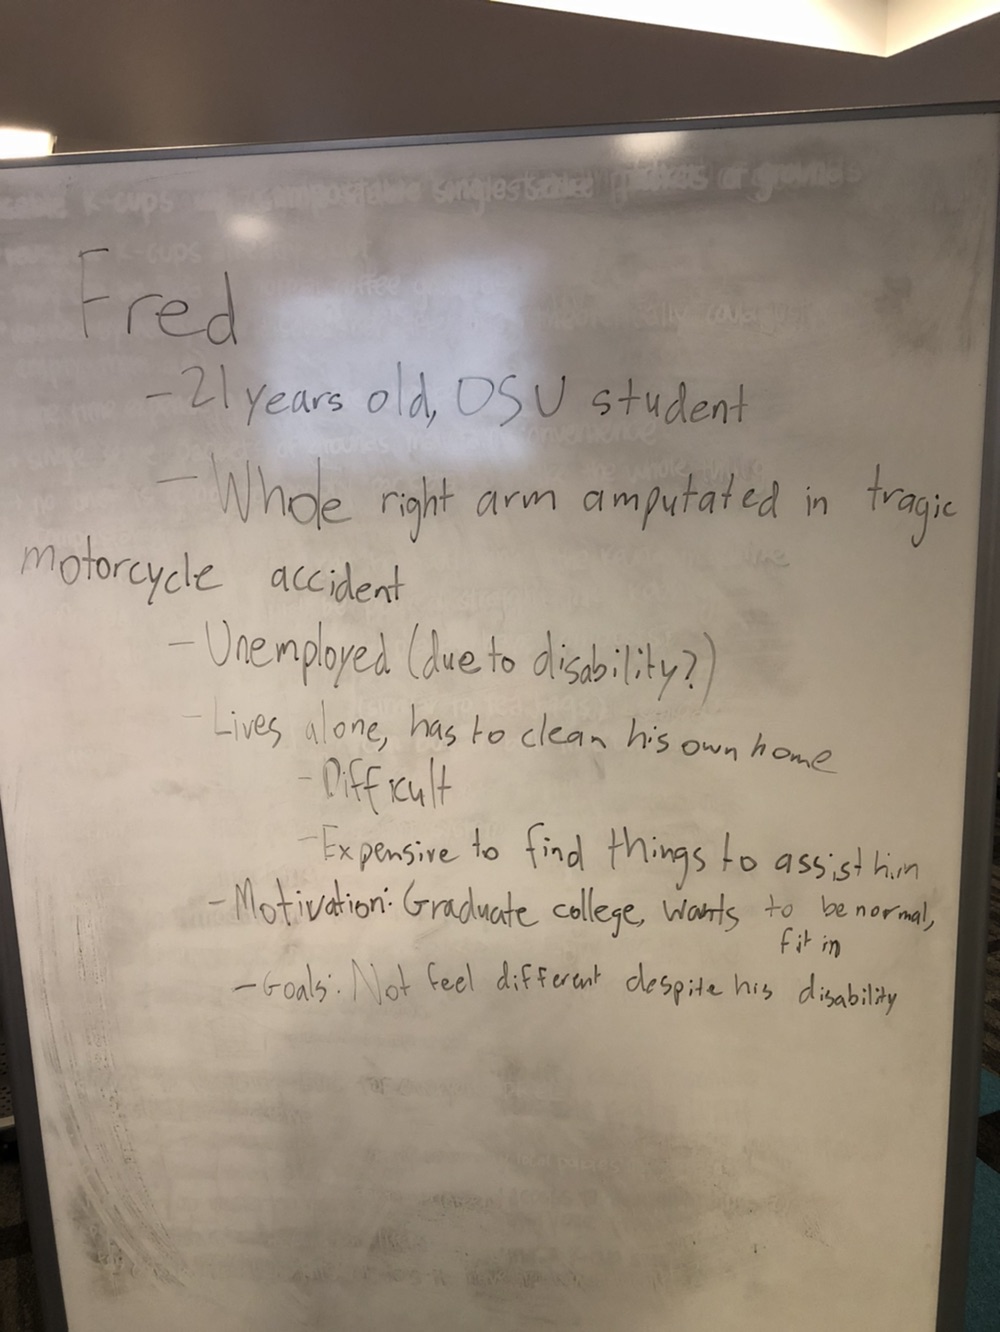 K-cups singlestable of grounds
K-cups
coffee
Fred
- 21 years old, OSU student
- Whole right arm amputated in tragic
motorcycle accident
- Unemployed (due to disability?)
- Lives alone, has to clean his own home
- Difficult
- Expensive to find things to assist him
- Motivation: Graduate college, wants to be normal,
fit in
- Goals: Not feel different despite his disability